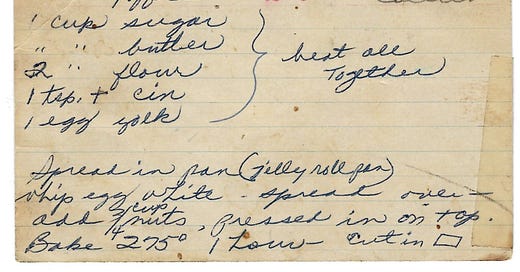 1 cup sugar
" " butter
2 " flour
1 tsp. + cin
1 egg yolk
beat all
together
Spread in pan (jelly roll pan)
whip egg white - spread over -
add 3/4 cup nuts, pressed in on top.
Bake 275° 1 hour - cut in ▭